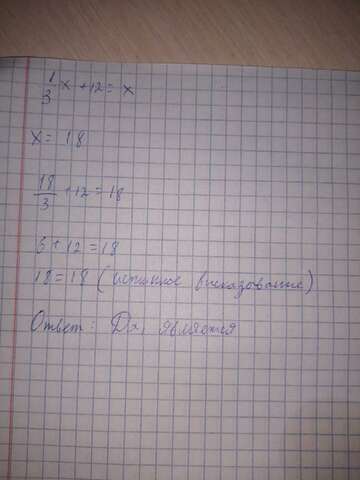 1/3 x + 12 = x
x = 18
18/3 + 12 = 18
6 + 12 = 18
18 = 18 (истинное высказывание)
Ответ: Да, является